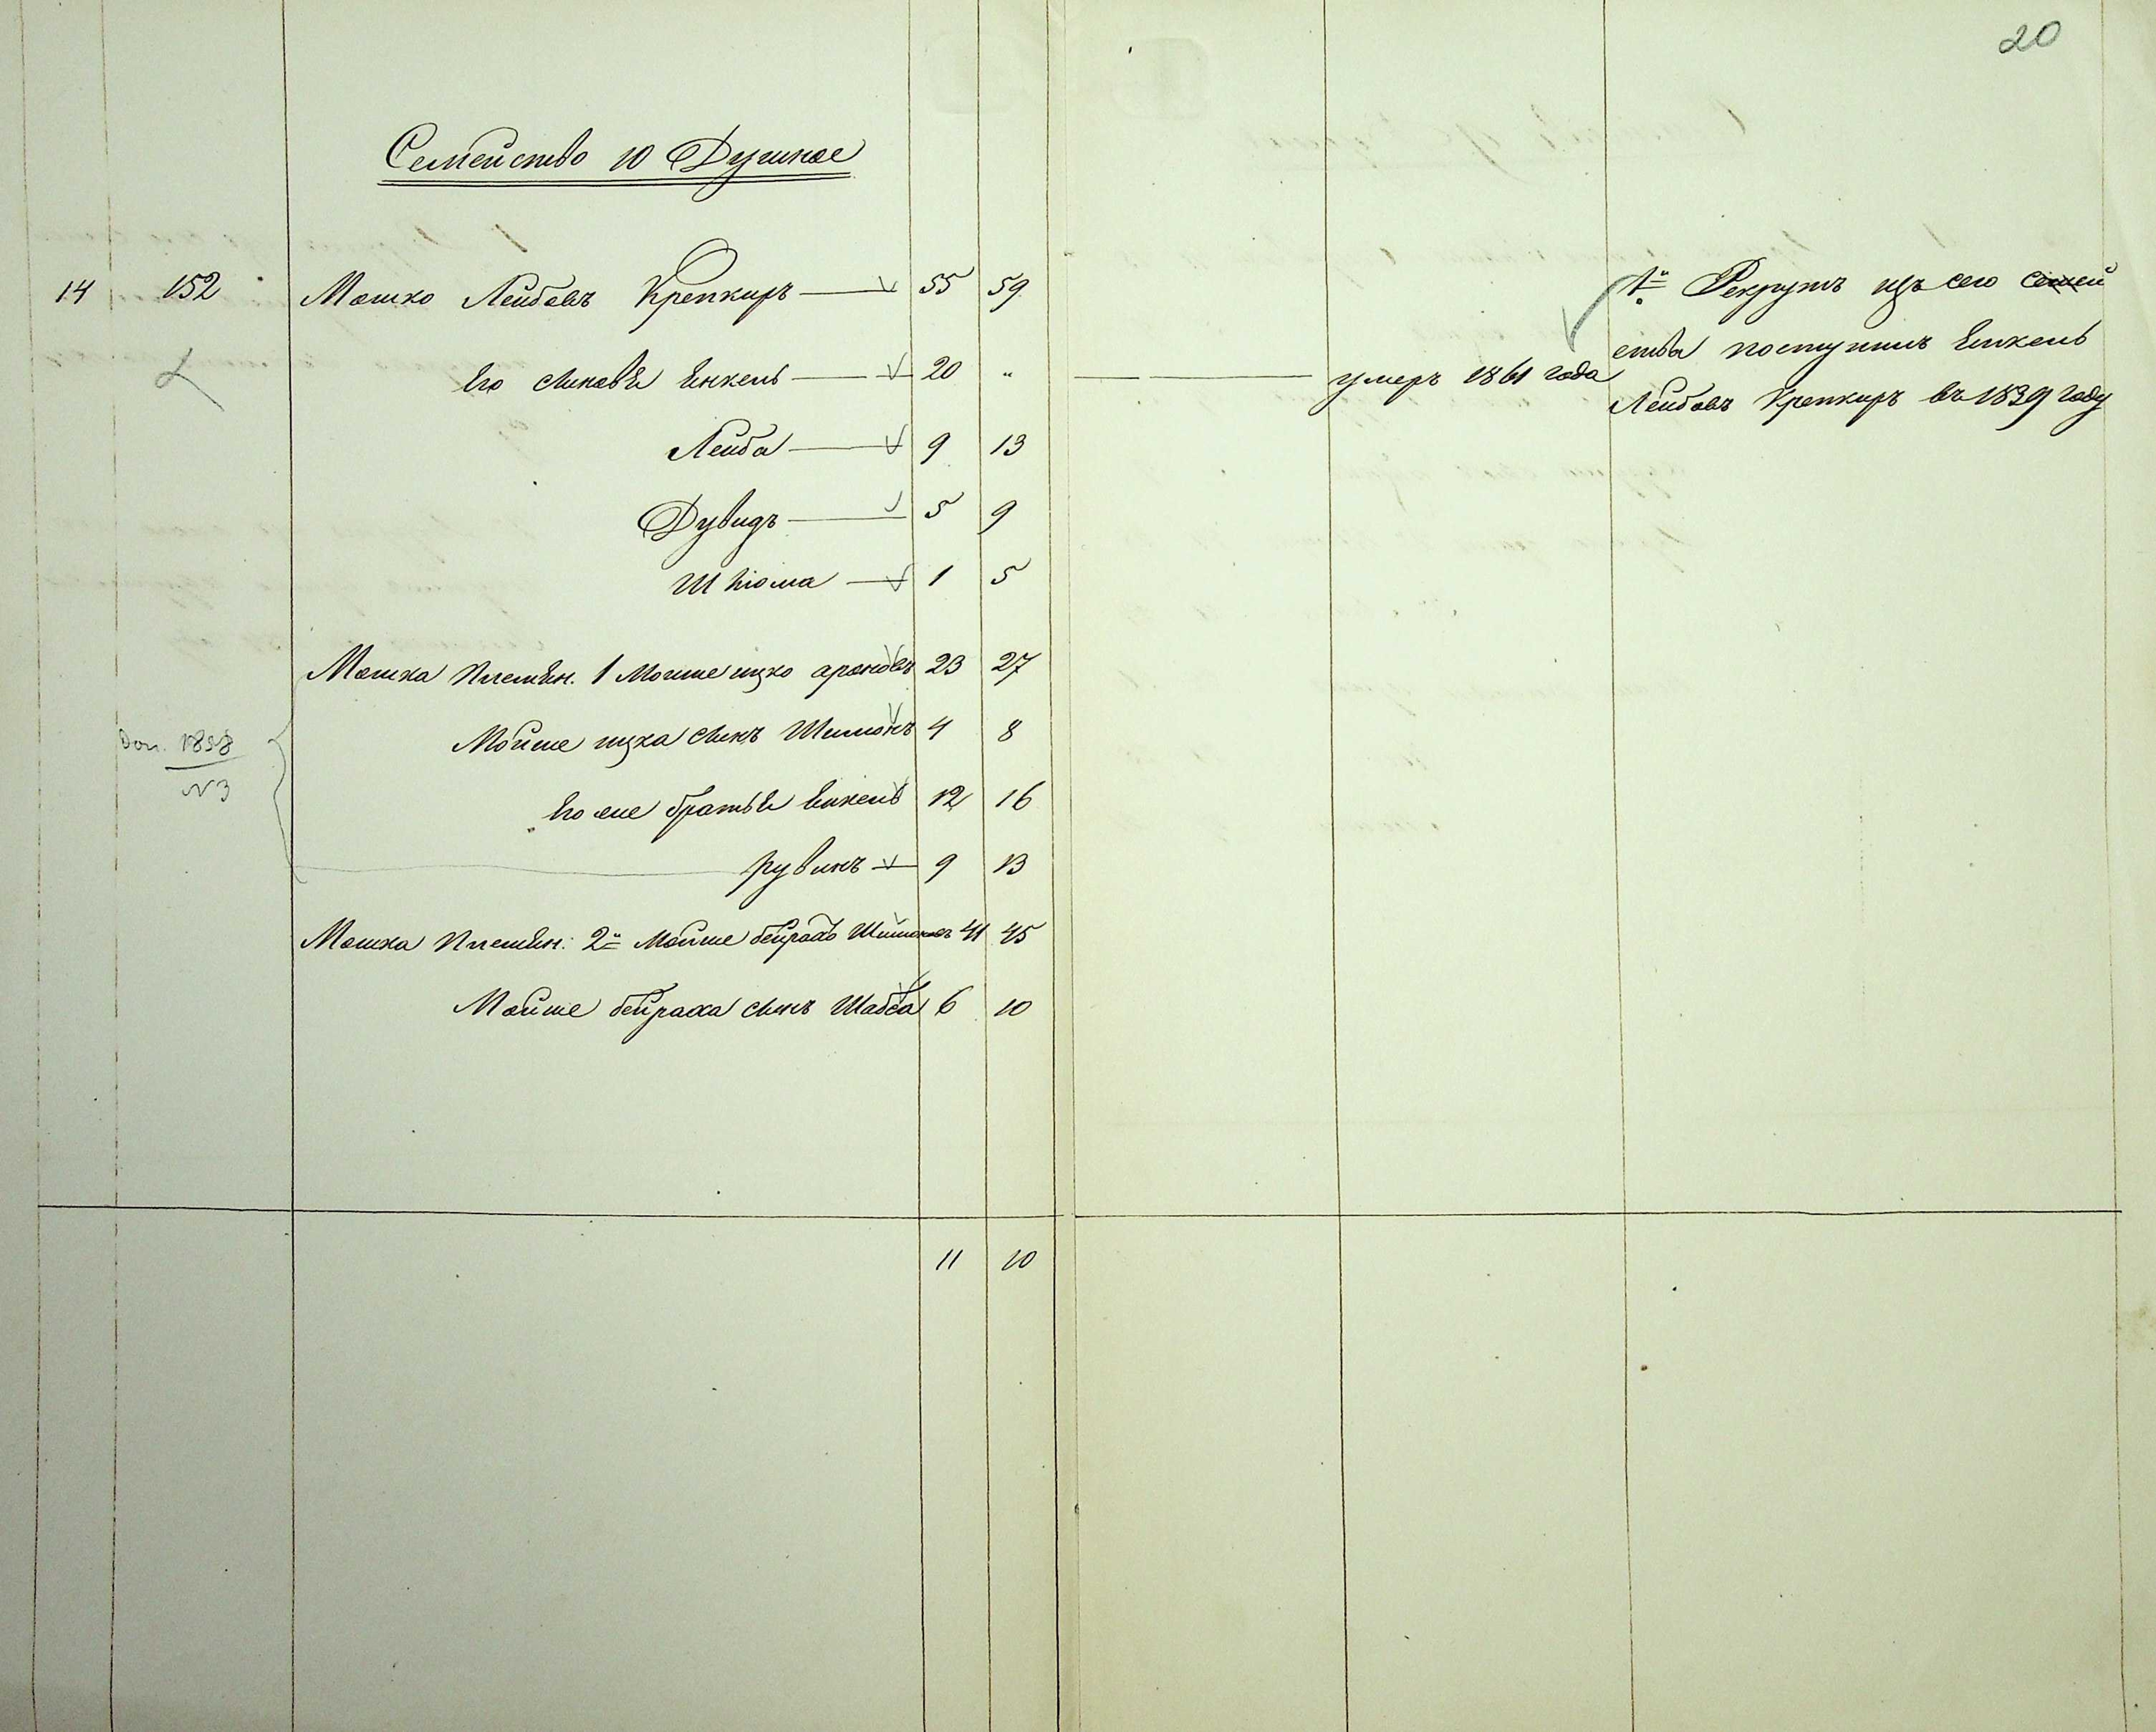 20
Семейство 10 Душное
14 152 Мошко Лейбовъ Крепкиръ 55 59
Его сыновья Янкель 20 " умеръ 1861 года
Лейба 9 13
Дувидъ 5 9
Шліома 1 5
Мошка племян. 1 Мойше ицко ароновъ 23 27
Мойше ицка сынъ Шимонъ 4 8
Доп. 1858
N3
Его же братья Янкель 12 16
рувинъ 9 13
Мошка племян. 2й Мойше бейрахъ Шимоновъ 41 45
Мойше бейраха сынъ Шабса 6 10
11 10
1й Рекрутъ изъ сего семей
ства поступилъ Янкель
Лейбовъ Крепкиръ въ 1839 году